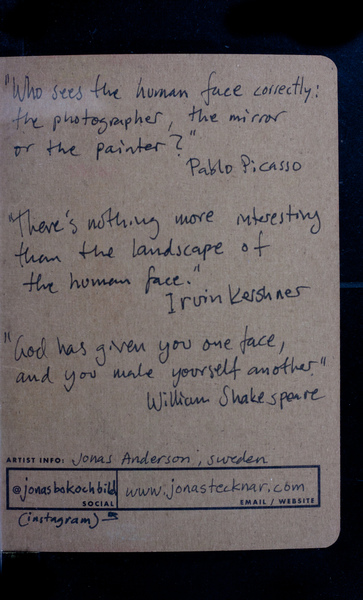 "Who sees the human face correctly:
the photographer, the mirror
or the painter?"
Pablo Picasso
"There's nothing more interesting
than the landscape of
the human face."
Irvin Kershner
"God has given you one face,
and you make yourself another."
William Shakespeare
ARTIST INFO: Jonas Anderson, sweden
@jonasbokochbild www.jonastecknar.com
SOCIAL EMAIL / WEBSITE
(instagram)